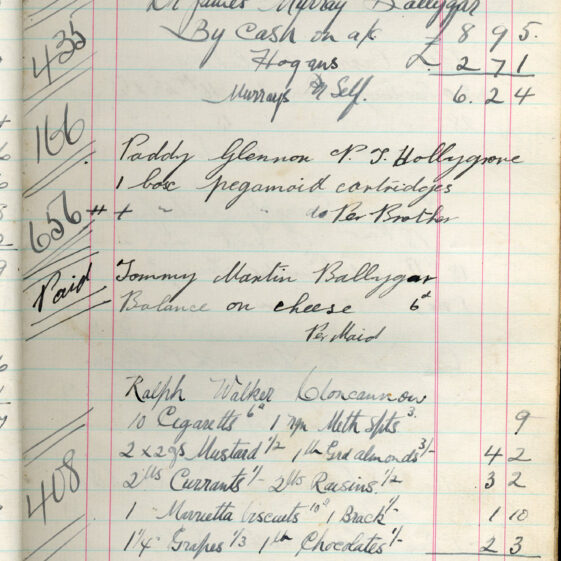 Dr James Murray Ballygar
435 By Cash on a/c £ 8 9 5.
Hogans £ 2 7 1
Murrays Self. 6. 2 4
166 Paddy Glennon N.T. Hollygrove
1 box pegamoid cartridges
656 + + " " do Per Brother
Paid Tommy Martin Ballygar
Balance on cheese 6d
Per Maid
Ralph Walker Cloncannow
10 Cigaretts 6d 1 Meth Spts 3. 9
2 x 2 ozs Mustard 1/2 1 lb Grd almonds 3/- 4 2
408 2 lbs Currants 1/- 2 lbs Raisins 1/2 3 2
1 Marrietta biscuits 10d 1 Brack 1/- 1 10
1 1/4 Grapes 1/3 1 lb Chocolates 1/- 2 3